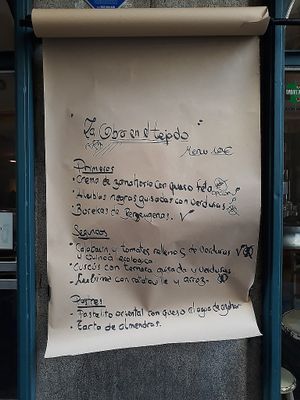 "La Cabra en el tejado"
Menú 10€
Primeros
· Crema de zanahoria con queso feta
· Alubias negras guisadas con verduras
· Borekas de berenjenas. V
Segundos
· Calabacín y tomates rellenos de verduras V
y quinoa ecológica
· Cuscús con ternera guisada y verduras
con ratatouille y arroz.
Postres
· Pastelito oriental con queso y agua de azahar
· Tarta de almendras.